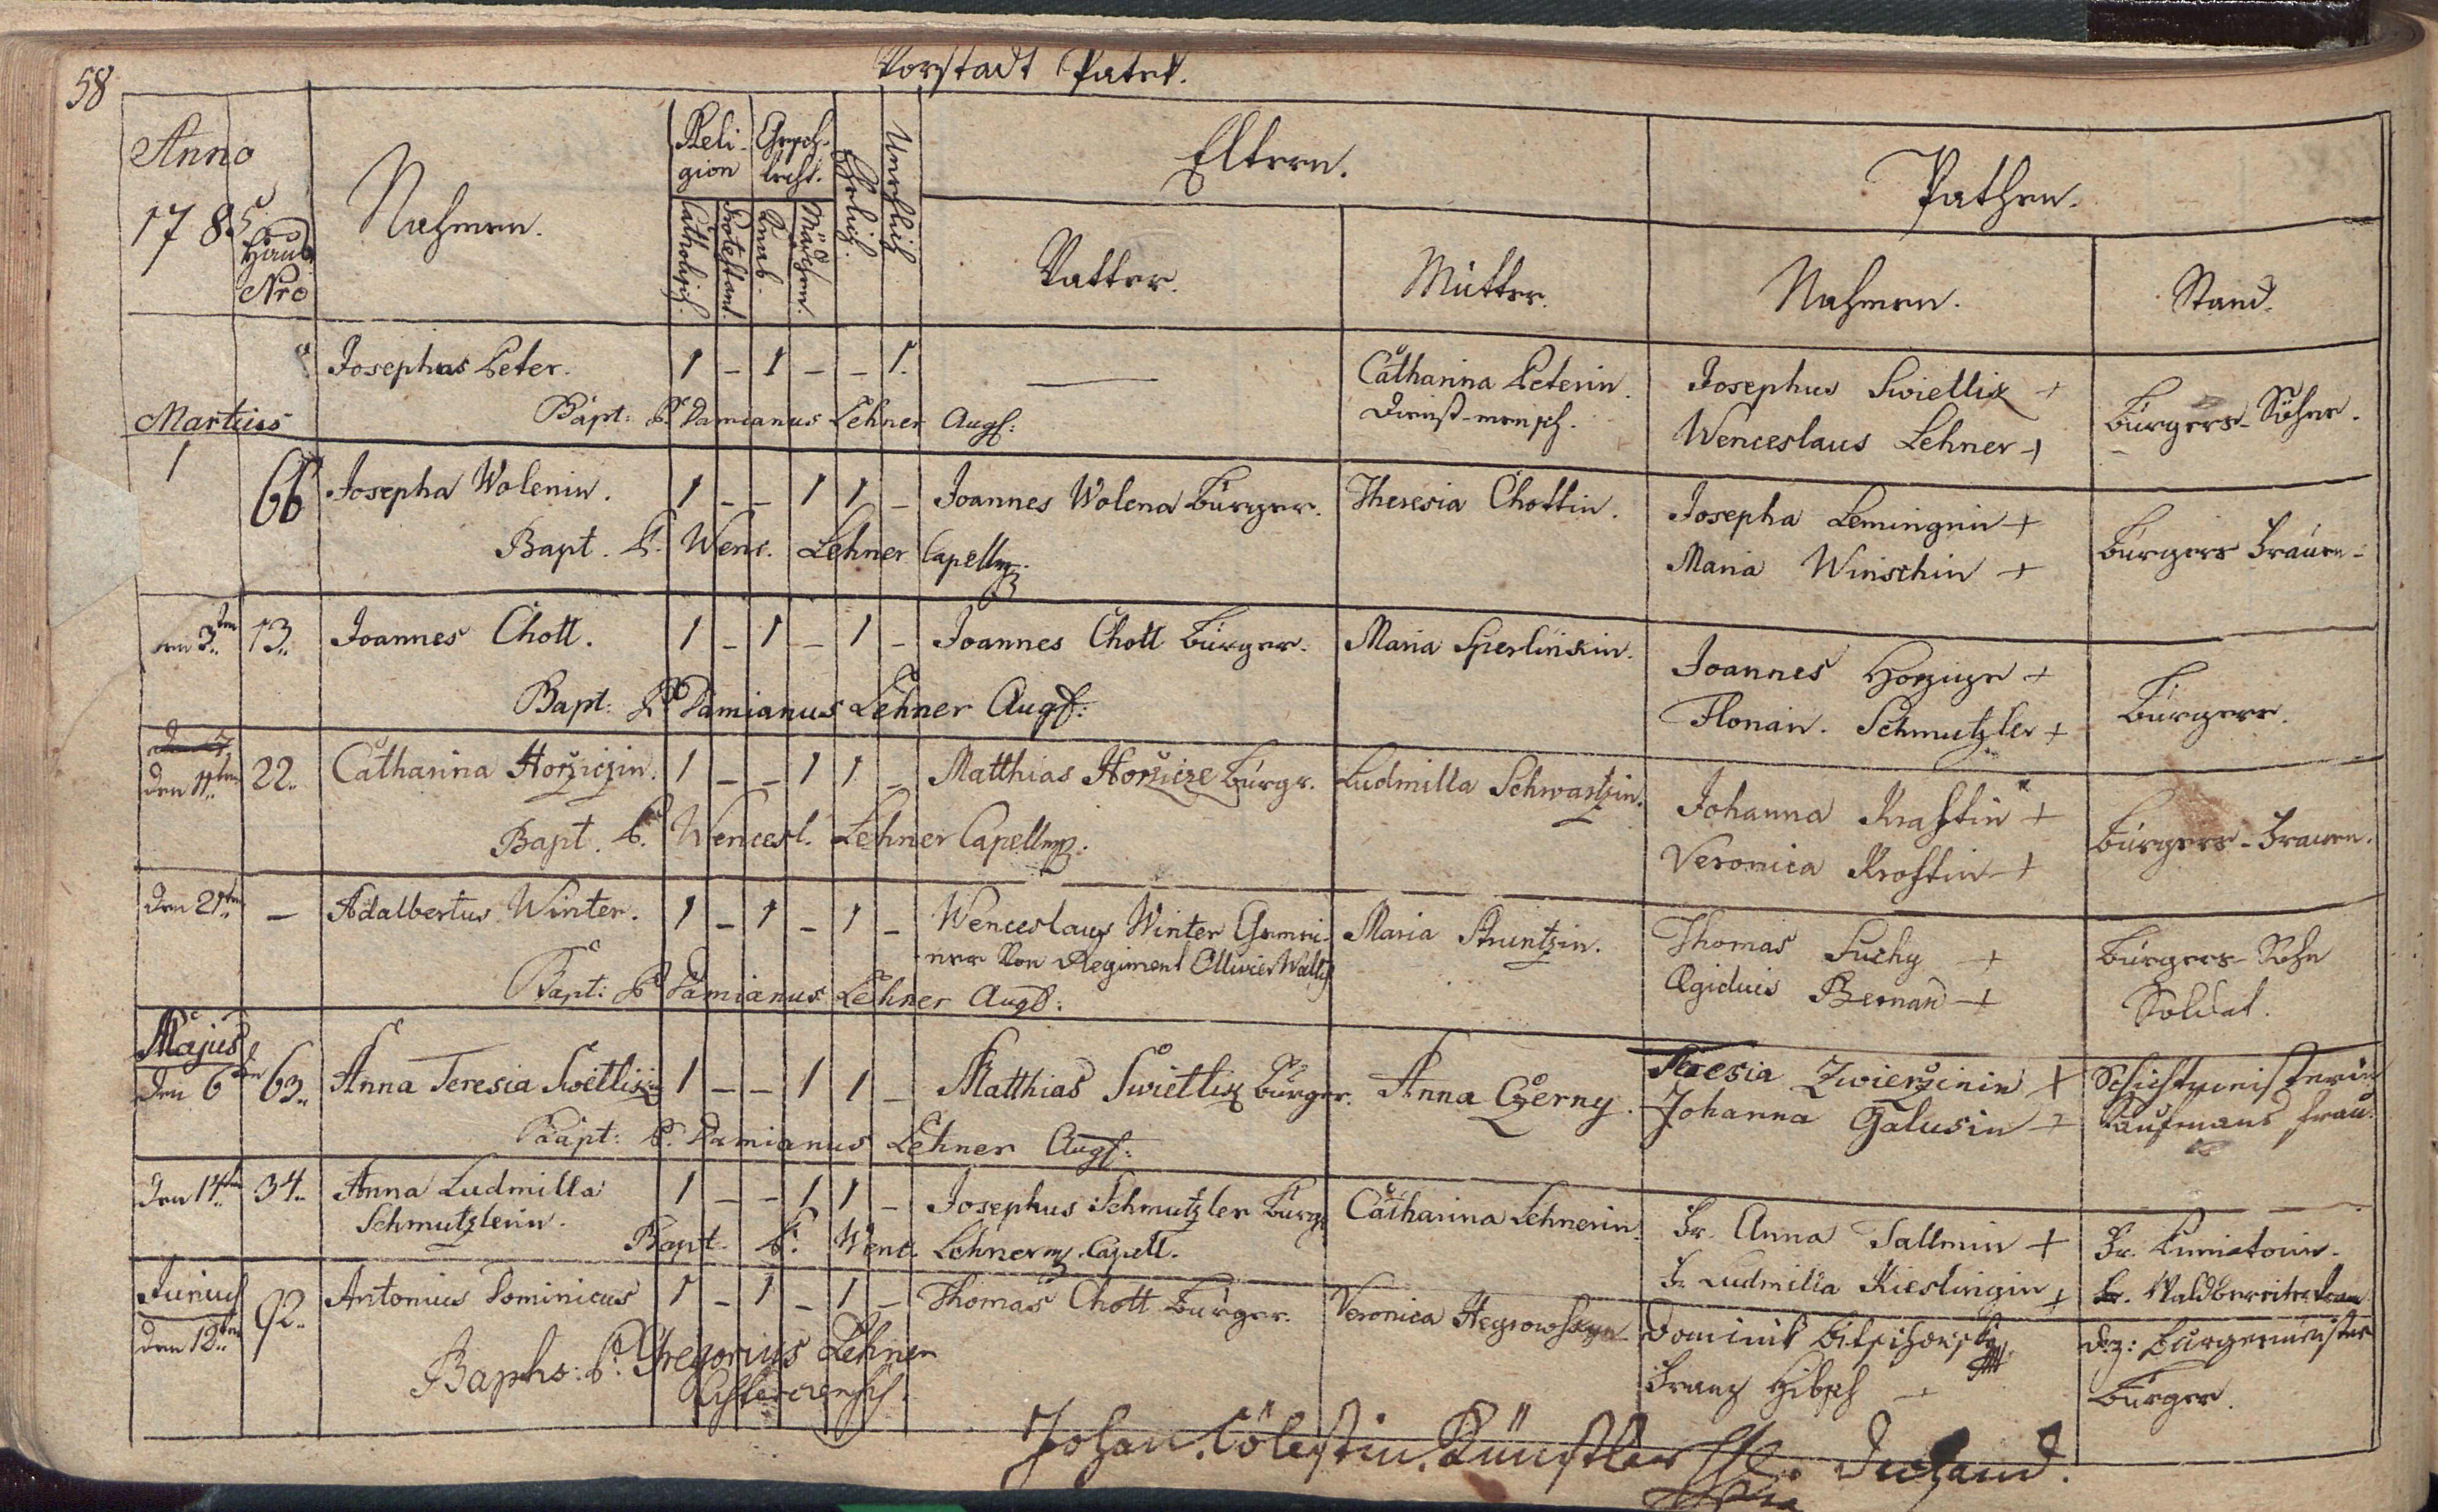 58
Vorstadt Patek.
Anno
1785
Hauß
Nro
Nahmen.
Reli-
gion
Geschl-
lecht.
Catholisch.
Protestant.
Knab.
Mädchen.
Ehelich.
Unehlich
Eltern.
Vatter.
Mutter.
Pathen.
Nahmen.
Stand.
Josephus Peter. 1 – 1 – – 1.
Catharina Peterin.
Dienst-mensch.
Josephus Swietlix +
Wenceslaus Lehner +
Bürgers-Söhne.
Bapt: P. Damianus Lehner Aug:
Martius
1 66 Josepha Wolenin. 1 – – 1 1 – Joannes Wolena Bürger. Theresia Chottin.
Josepha Lemingrin +
Maria Winschin +
Bürgers Frauen-
Bapt. P. Wenc. Lehner Capell.
3ten 13. Joannes Chott. 1 – 1 – 1 – Joannes Chott Bürger. Maria Sperlinkin.
Joannes +
Florian. Schmutzler +
Bürgere.
Bapt: P. Damianus Lehner Aug:
den 11ten 22. Catharina Horziczin. 1 – – 1 1 – Matthias Horzicze Bürgr. Ludmilla Schwartzin.
Johanna Kraftin +
Veronica Kroftin +
Bürgers-Frauen.
Bapt. P. Wencesl. Lehner Capell.
den 21ten – Adalbertus Winter. 1 – 1 – 1 – Wenceslaus Winter Gemei-
ner Von Regiment Ollivier Wallis
Maria Kuntzin.
Thomas Suchy +
Ægidius Bernard +
Bürgers-Sohn
Soldat.
Bapt: P. Damianus Lehner Aug:
Majus
den 6ten 63. Anna Teresia Swietlixin 1 – – 1 1 – Matthias Swietlix Bürger. Anna Czerny.
Teresia Zwierzinin +
Johanna Galusin +
Schichtmeisterin
Kaufmans frau.
Bapt: P. Damianus Lehner Aug:
den 14ten 34. Anna Ludmilla
Schmutzlerin. 1 – – 1 1 – Josephus Schmutzler Bürg. Catharina Lehnerin.
Fr. Anna Sallmin +
Fr. Ludmilla Kieslingin +
Fr.
Fr. Waldbereiter Frau
Bapt. P. Wenc. Lehner Capell.
Junius
den 12ten 92. Antonius Dominicus 1 – 1 – 1 – Thomas Chott Bürger. Veronica
Dominik
Franz Hibsch +
Bürgermeister
Bürger.
Baptis: P. Gregorius Lehner
Cisterciensis.
Johan. Cölestin. Künstler Dechand.